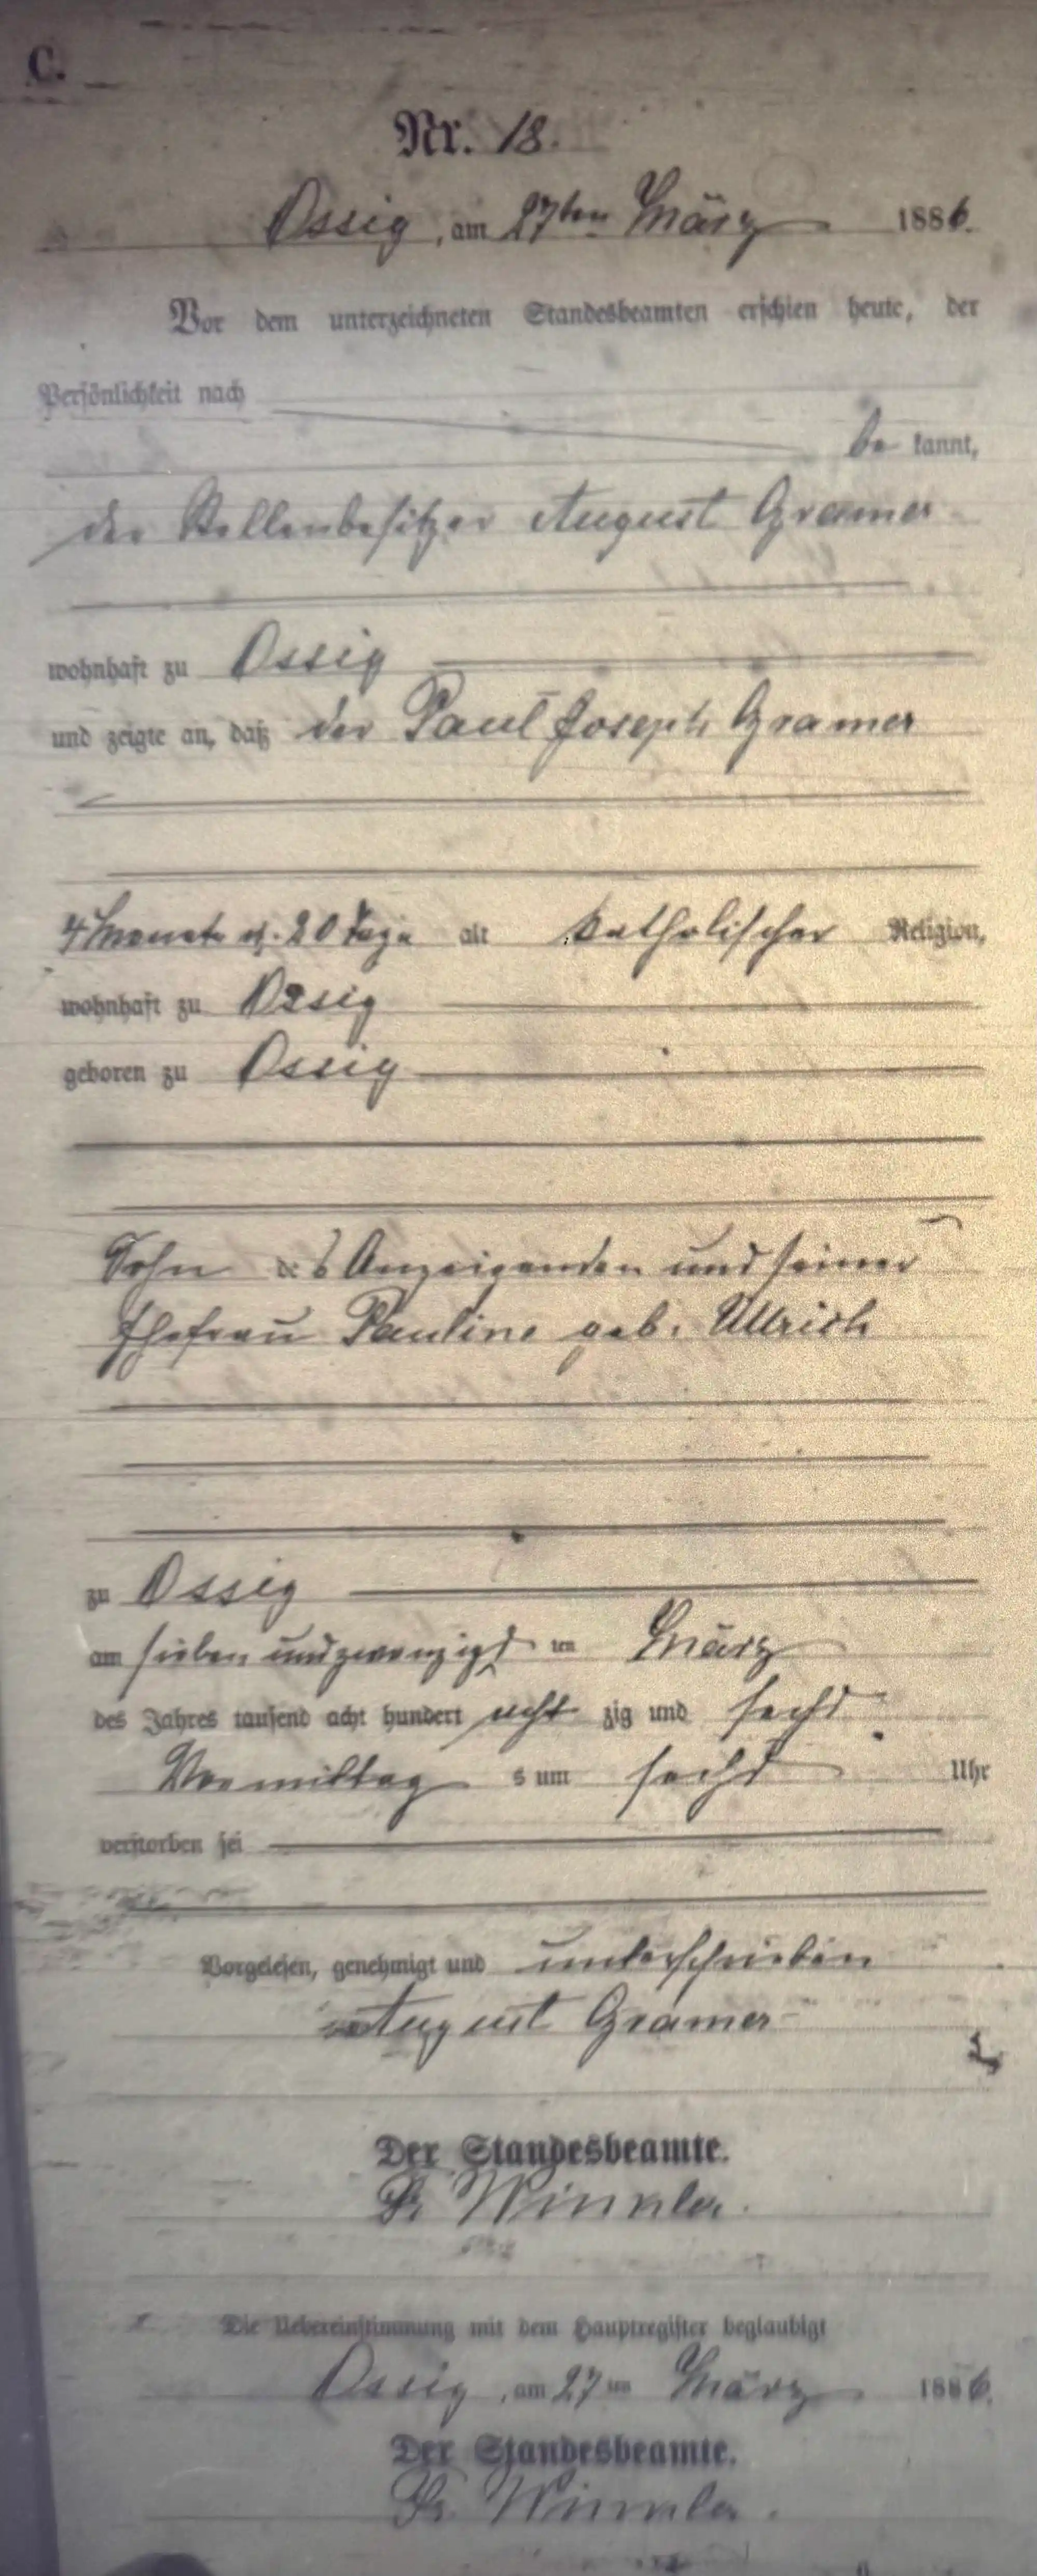 C.
Nr. 18.
Ossig, am 27ten März 1886.
Vor dem unterzeichneten Standesbeamten erschien heute, der
Persönlichkeit nach
be kannt,
der Stellenbesitzer August Gramer
wohnhaft zu Ossig
und zeigte an, daß der Paul Joseph Gramer
4 Monate u. 20 Tage alt katholischer Religion,
wohnhaft zu Ossig
geboren zu Ossig
Sohn des Anzeigenden und seiner
Ehefrau Pauline geb. Ullrich
zu Ossig
am sieben und zwanzigs ten März
des Jahres tausend acht hundert acht zig und sechs
Vormittag s um sechs Uhr
verstorben sei
Vorgelesen, genehmigt und unterschrieben
August Gramer
Der Standesbeamte.
Fr. Winkler.
Die Uebereinstimmung mit dem Hauptregister beglaubigt
Ossig, am 27ten März 1886.
Der Standesbeamte.
Fr. Winkler.